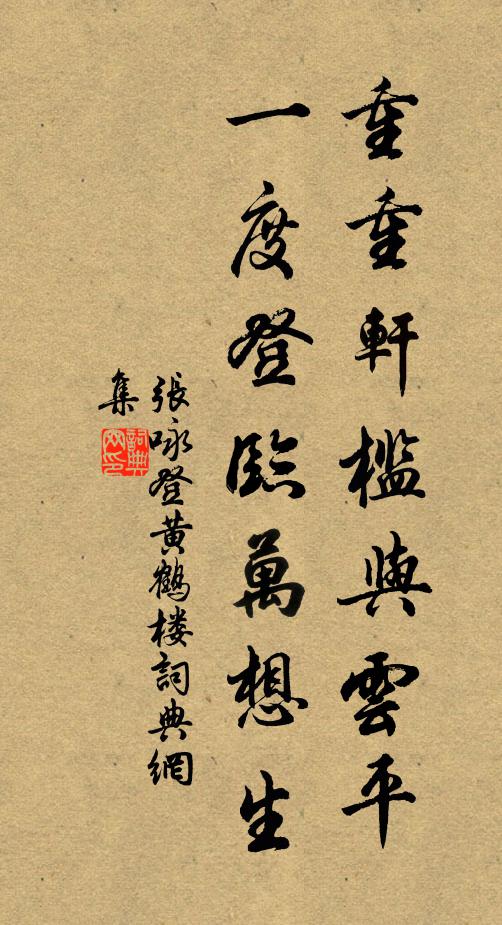 重重軒檻與雲平
一度登臨萬想生
張咏登黄鶴楼詞典網
集
詞典
网印